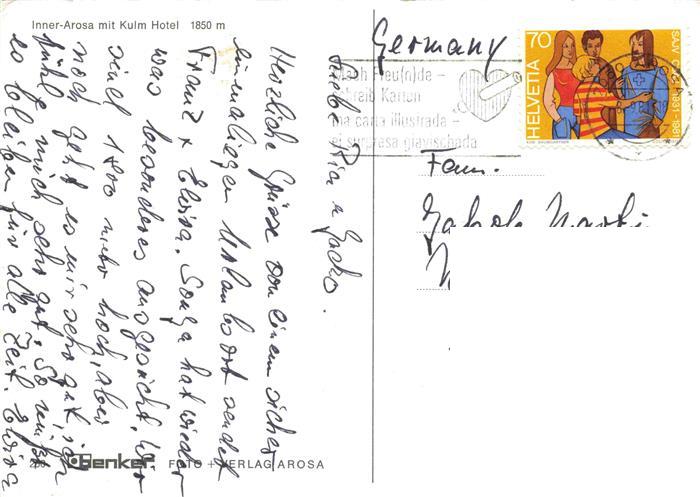 Inner-Arosa mit Kulm Hotel 1850 m
Germany
HELVETIA 70
SAJV CSAJ 1931-1981
Mach Freu(n)de -
schreib Karten
ina carta illustrada -
ei surpresa giavischada
Fam.
Jakob
Liebe Ria u Jacko.
Herzliche Grüsse von einem sicher
einmaligen Urlaubsort sendet
Franz & Elvira. Sonja hat wieder
was besonderes ausgesucht. Wir
sind 1800 mtr hoch, aber
noch geht es mir sehr gut, ich
fühle mich sehr gut. So muss
es bleiben für alle Zeit. Elvira
Henker FOTO + VERLAG AROSA